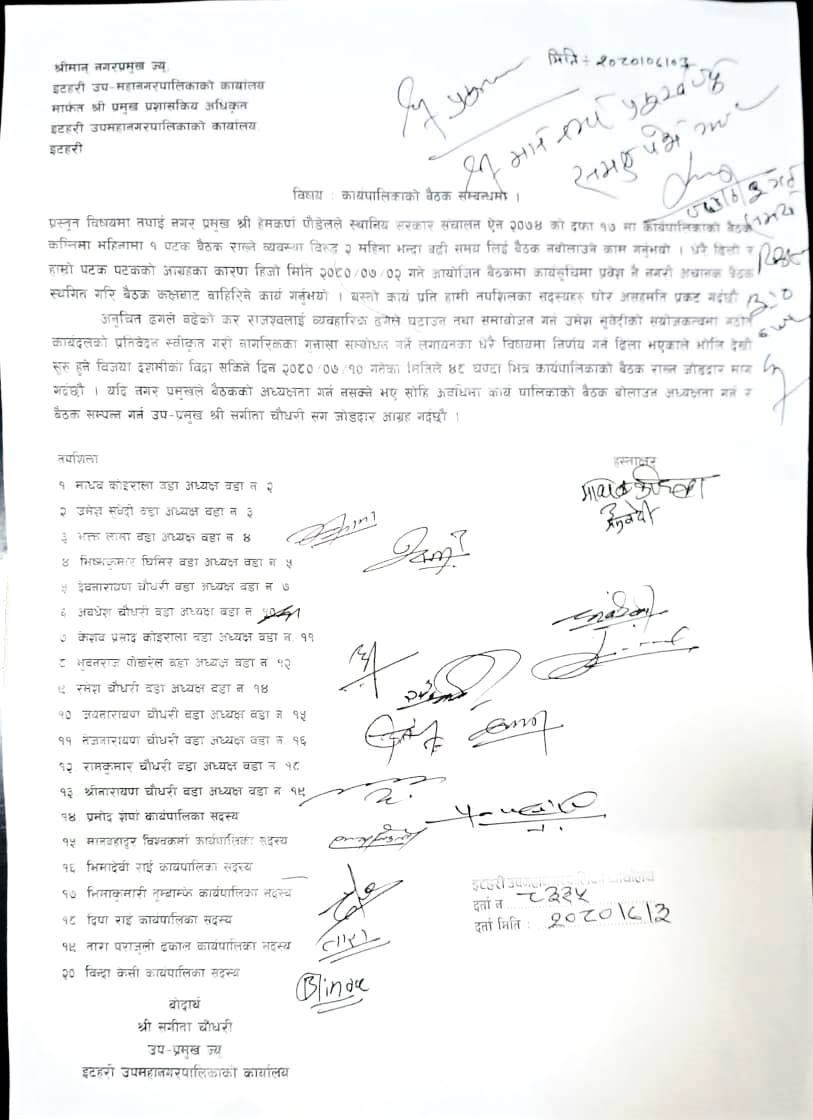 श्रीमान् नगरप्रमुख ज्यू,
मिति : २०८०।०७।०३
इटहरी उप-महानगरपालिकाको कार्यालय
मार्फत श्री प्रमुख प्रशासकिय अधिकृत
इटहरी उपमहानगरपालिकाको कार्यालय,
इटहरी
विषय : कार्यपालिकाको बैठक सम्बन्धमा ।
प्रस्तुत विषयमा तपाई नगर प्रमुख श्री हेमकर्ण पौडेलले स्थानिय सरकार संचालन ऐन २०७४ को दफा १७ मा कार्यपालिकाको बैठक
कम्तिमा महिनामा १ पटक बैठक राख्ने व्यवस्था विरुद्ध २ महिना भन्दा बढी समय लिई बैठक नबोलाउने काम गर्नुभयो । धेरै ढिलो र
हाम्रो पटक पटकको आग्रहका कारण हिजो मिति २०८०/०७/०२ गते आयोजित बैठकमा कार्यसुचिमा प्रवेश नै नगरी अचानक बैठक
स्थगित गरि बैठक कक्षबाट बाहिरिने कार्य गर्नुभयो । यस्तो कार्य प्रति हामी तपशिलका सदस्यहरु घोर असहमति प्रकट गर्दछौ
अनुचित ढंगले बढेको कर राजश्वलाई व्यवहारिक ढंगले घटाउन तथा समायोजन गर्न उमेश सुवेदीको संयोजकत्वमा गठीत
कार्यदलको प्रतिवेदन स्वीकृत गरी नागरिकका गुनासा सम्बोधन गर्ने लगायतका धेरै विषयमा निर्णय गर्न ढिला भएकाले भोलि देखी
सुरु हुने विजया दशमीको विदा सकिने दिन २०८०/०७/१० गतेका मितिले ४८ घण्टा भित्र कार्यपालिकाको बैठक राख्न जोडदार माग
गर्दछौ । यदि नगर प्रमुखले बैठकको अध्यक्षता गर्न नसक्ने भए सोहि अवधिमा कार्य पालिकाको बैठक बोलाउन अध्यक्षता गर्न र
बैठक सम्पन्न गर्न उप-प्रमुख श्री संगीता चौधरी संग जोडदार आग्रह गर्दछौ ।
तपशिल।
हस्ताक्षर
१ माधव कोइराला वडा अध्यक्ष वडा नं २
२ उमेश सुवेदी वडा अध्यक्ष वडा नं ३
३ भक्त लामा वडा अध्यक्ष वडा नं ४
४ भिष्मकुमार घिमिरे वडा अध्यक्ष वडा नं ५
५ देवनारायण चौधरी वडा अध्यक्ष वडा नं ७
६ अवधेश चौधरी वडा अध्यक्ष वडा नं १०
७ केशव प्रसाद कोइराला वडा अध्यक्ष वडा नं. ११
८ भुवनराज पोखरेल वडा अध्यक्ष वडा नं १२
९ रमेश चौधरी वडा अध्यक्ष वडा नं १४
१० जयनारायण चौधरी वडा अध्यक्ष वडा नं १५
११ तेजनारायण चौधरी वडा अध्यक्ष वडा नं १६
१२ रामकुमार चौधरी वडा अध्यक्ष वडा नं. १८
१३ श्रीनारायण चौधरी वडा अध्यक्ष वडा नं १९
१४ प्रमोद शेर्पा कार्यपालिका सदस्य
१५ मानबहादुर विश्वकर्मा कार्यपालिका सदस्य
१६ भिमादेवी राई कार्यपालिका सदस्य
१७ भिमाकुमारी तुम्बाम्फे कार्यपालिका सदस्य
१८ दिपा राई कार्यपालिका सदस्य
१९ तारा पराजुली ढकाल कार्यपालिका सदस्य
तारा
२० विन्दा केसी कार्यपालिका सदस्य
Binda
इटहरी उपमहानगरपालिकाको कार्यालय
दर्ता नं ८३३५
दर्ता मिति : २०८०।७।३
बोदार्थ
श्री संगीता चौधरी
उप-प्रमुख ज्यू,
इटहरी उपमहानगरपालिकाको कार्यालय